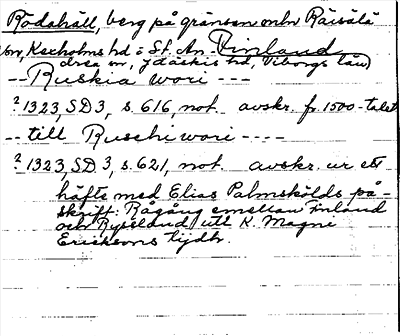 Rödahäll, berg på gränsen mln Räisälä
sn, Kexholms hd o St. An- Finland
drea sn, Jääskis hd, Viborgs län
-- Ruskia wori ---
? 1323, SD 3, s. 616, not. avskr. fr. 1500-talet
-- till Ruschiwori ----
? 1323, SD 3, s. 621, not. avskr. ur ett
häfte med Elias Palmskölds på-
skrift: Rågång emellan Finland
och Rysslandh utl K. Magni
Ericksons tijdh.